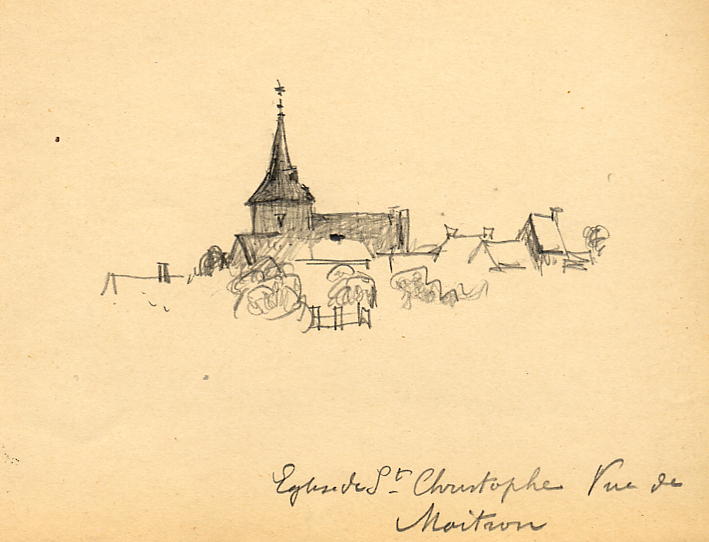 Eglise de St Christophe Vue de
Moitron